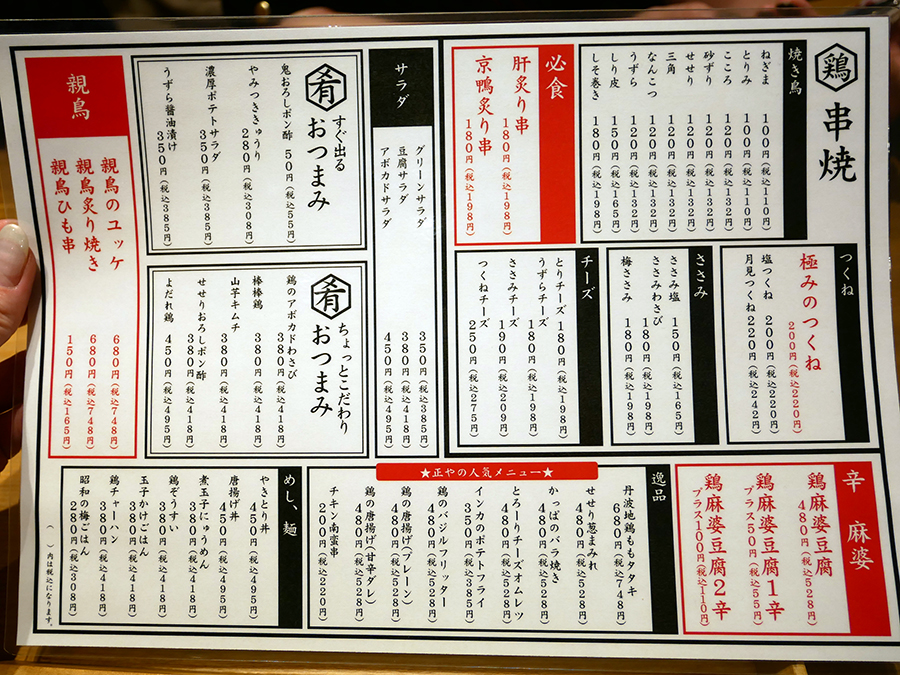 鶏 串焼
焼き鳥
ねぎま 100円(税込110円)
とりみ 100円(税込110円)
こころ 120円(税込132円)
砂ずり 120円(税込132円)
せせり 120円(税込132円)
三角 120円(税込132円)
なんこつ 120円(税込132円)
うずら 120円(税込132円)
しり皮 150円(税込165円)
しそ巻き 180円(税込198円)
必食
肝炙り串 180円(税込198円)
京鴨炙り串 180円(税込198円)
つくね
極みのつくね 200円(税込220円)
塩つくね 200円(税込220円)
月見つくね 220円(税込242円)
ささみ
ささみ塩 150円(税込165円)
ささみわさび 180円(税込198円)
梅ささみ 180円(税込198円)
チーズ
とりチーズ 180円(税込198円)
うずらチーズ 180円(税込198円)
ささみチーズ 190円(税込209円)
つくねチーズ 250円(税込275円)
サラダ
グリーンサラダ 350円(税込385円)
豆腐サラダ 380円(税込418円)
アボカドサラダ 450円(税込495円)
肴 すぐ出る おつまみ
鬼おろしポン酢 50円(税込55円)
やみつききゅうり 280円(税込308円)
濃厚ポテトサラダ 350円(税込385円)
うずら醤油漬け 350円(税込385円)
肴 ちょっとこだわり おつまみ
鶏のアボカドわさび 380円(税込418円)
棒棒鶏 380円(税込418円)
山芋キムチ 380円(税込418円)
せせりおろしポン酢 380円(税込418円)
よだれ鶏 450円(税込495円)
親鳥
親鳥のユッケ 680円(税込748円)
親鳥炙り焼き 680円(税込748円)
親鳥ひも串 150円(税込165円)
辛 麻婆
鶏麻婆豆腐 480円(税込528円)
鶏麻婆豆腐1辛 プラス50円(税込55円)
鶏麻婆豆腐2辛 プラス100円(税込110円)
★正やの人気メニュー★
逸品
丹波地鶏ももタタキ 680円(税込748円)
せせり葱まみれ 480円(税込528円)
かっぱのバラ焼き 480円(税込528円)
とろーりチーズオムレツ 480円(税込528円)
インカのポテトフライ 350円(税込385円)
鶏のバジルフリッター 480円(税込528円)
鶏の唐揚げ(プレーン) 480円(税込528円)
鶏の唐揚げ(甘辛ダレ) 480円(税込528円)
チキン南蛮串 200円(税込220円)
めし、麺
やきとり丼 450円(税込495円)
唐揚げ丼 450円(税込495円)
煮玉子にゅうめん 380円(税込418円)
鶏ぞうすい 380円(税込418円)
玉子かけごはん 380円(税込418円)
鶏チャーハン 380円(税込418円)
昭和の梅ごはん 280円(税込308円)
( )内は税込になります。